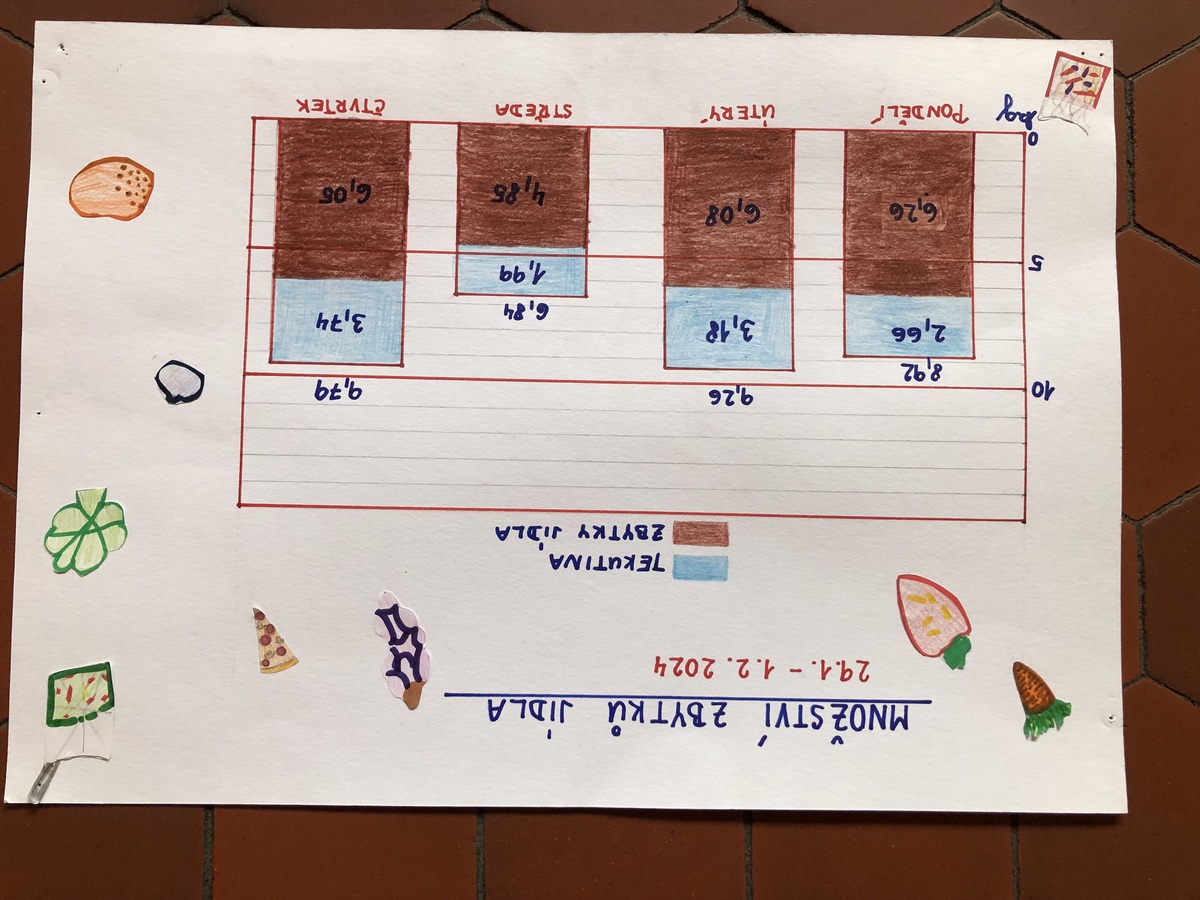 MNOŽSTVÍ ZBYTKŮ JÍDLA
29.1. - 1.2. 2024
TEKUTINA
ZBYTKY JÍDLA
10
9,26
9,79
8,92
2,66
3,18
6,84
3,74
5
1,99
6,26
6,08
4,85
6,05
0
kg
PONDĚLÍ
ÚTERÝ
STŘEDA
ČTVRTEK